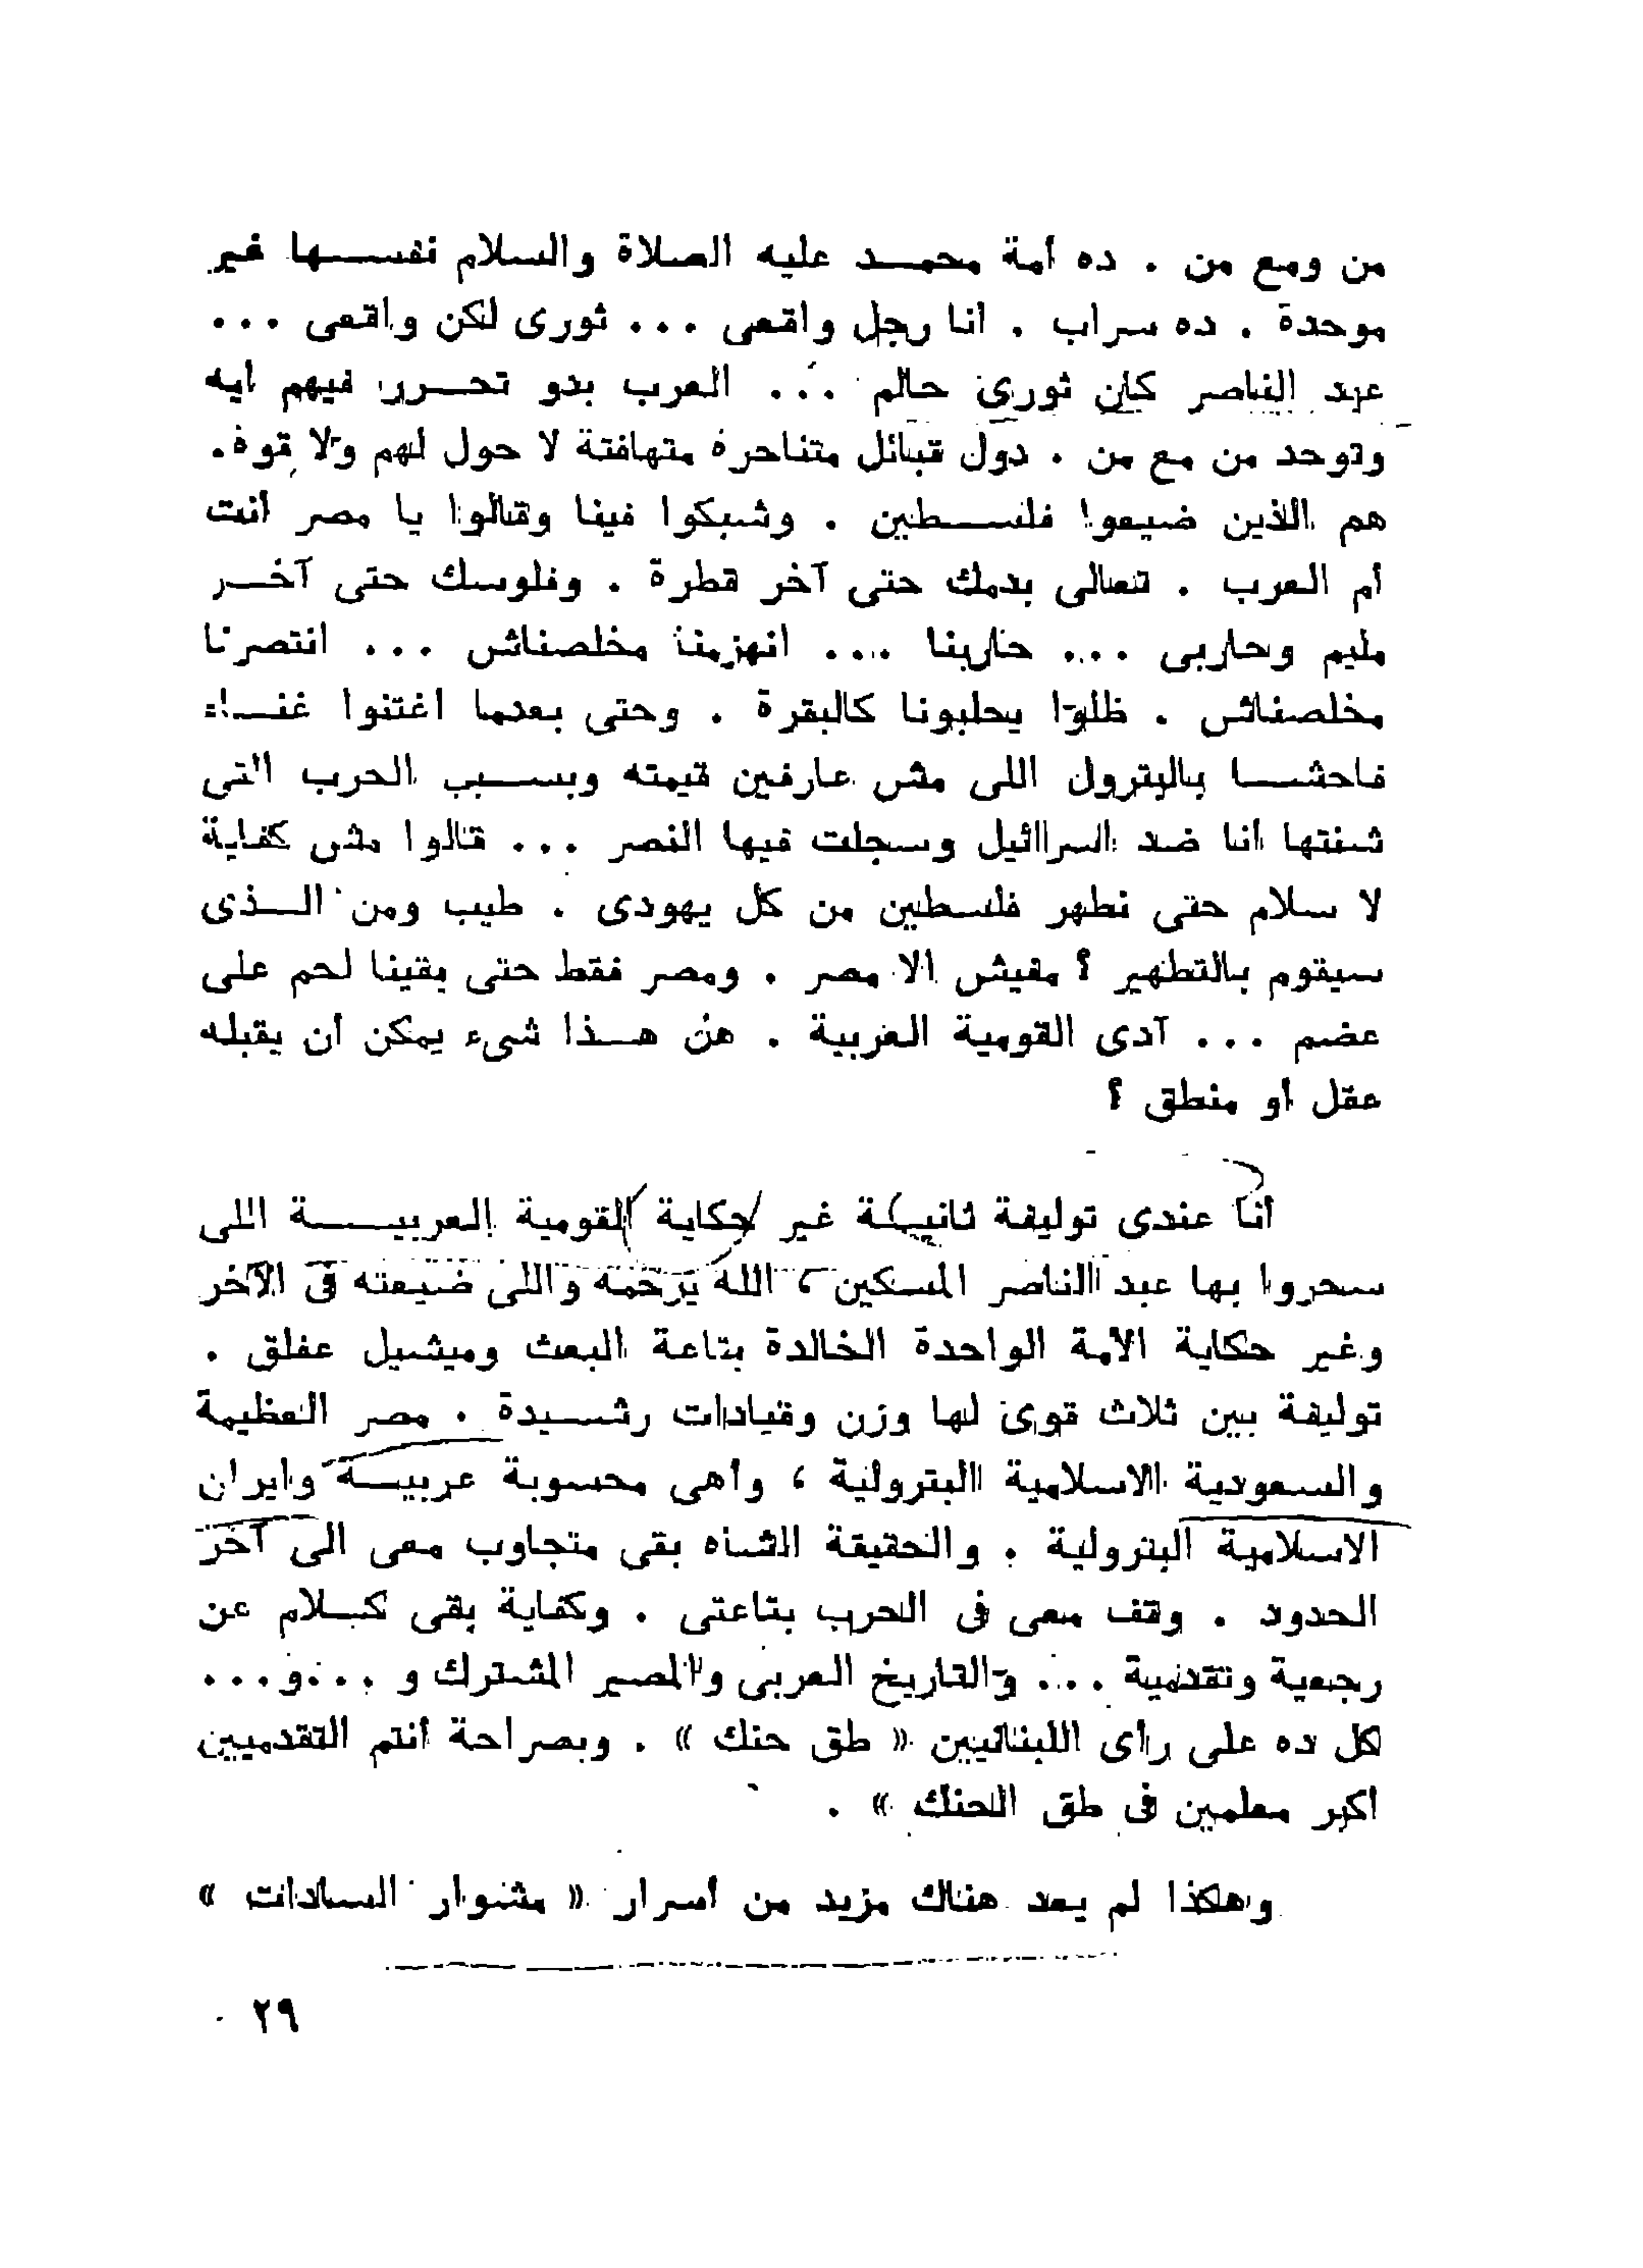 من ومع من . ده أمة محمد عليه الصلاة والسلام نفسها غير
موحدة . ده سراب . انا رجل واقعى ... ثورى لكن واقعى ...
عبد الناصر كان ثورى حالم ... العرب بدو تحرر فيهم ايه
وتوحد من مع من . دول قبائل متناحرة متهافتة لا حول لهم ولا قوة .
هم الذين ضيعوا فلسطين . وشبكوا فينا وقالوا يا مصر أنت
أم العرب . تعالى بدمك حتى آخر قطرة . وفلوسك حتى آخر
مليم وحاربى ... حاربنا ... انهزمنا مخلصناش ... انتصرنا
مخلصناش . ظلوا يحلبونا كالبقرة . وحتى بعدما اغتنوا غناء
فاحشا بالبترول اللى مش عارفين قيمته وبسبب الحرب التى
شنتها انا ضد اسرائيل وسجلت فيها النصر ... قالوا مش كفاية
لا سلام حتى نطهر فلسطين من كل يهودى . طيب ومن الذى
سيقوم بالتطهير ؟ مفيش الا مصر . ومصر فقط حتى بقينا لحم على
عضم ... آدى القومية العربية . هن هذا شىء يمكن أن يقبله
عقل أو منطق ؟
أنا عندى توليفة ثانية غير حكاية القومية العربية اللى
سحروا بها عبد الناصر المسكين ، الله يرحمه واللى ضيعته فى الآخر
وغير حكاية الأمة الواحدة الخالدة بتاعة البعث وميشيل عفلق .
توليفة بين ثلاث قوى لها وزن وقيادات رشيدة . مصر العظيمة
والسعودية الاسلامية البترولية ، وأهى محسوبة عربية وايران
الاسلامية البترولية . والحقيقة الشاه بقى متجاوب معى الى آخر
الحدود . وقف معى فى الحرب بتاعتى . وكفاية بقى كلام عن
رجعية وتقدمية ... والتاريخ العربى والمصير المشترك و ... و ...
كل ده على رأى اللبنانيين « طق حنك » . وبصراحة أنتم التقدميين
أكبر معلمين فى طق الحنك » .
وهكذا لم يعد هناك مزيد من أسرار « مشوار السادات »
٢٩